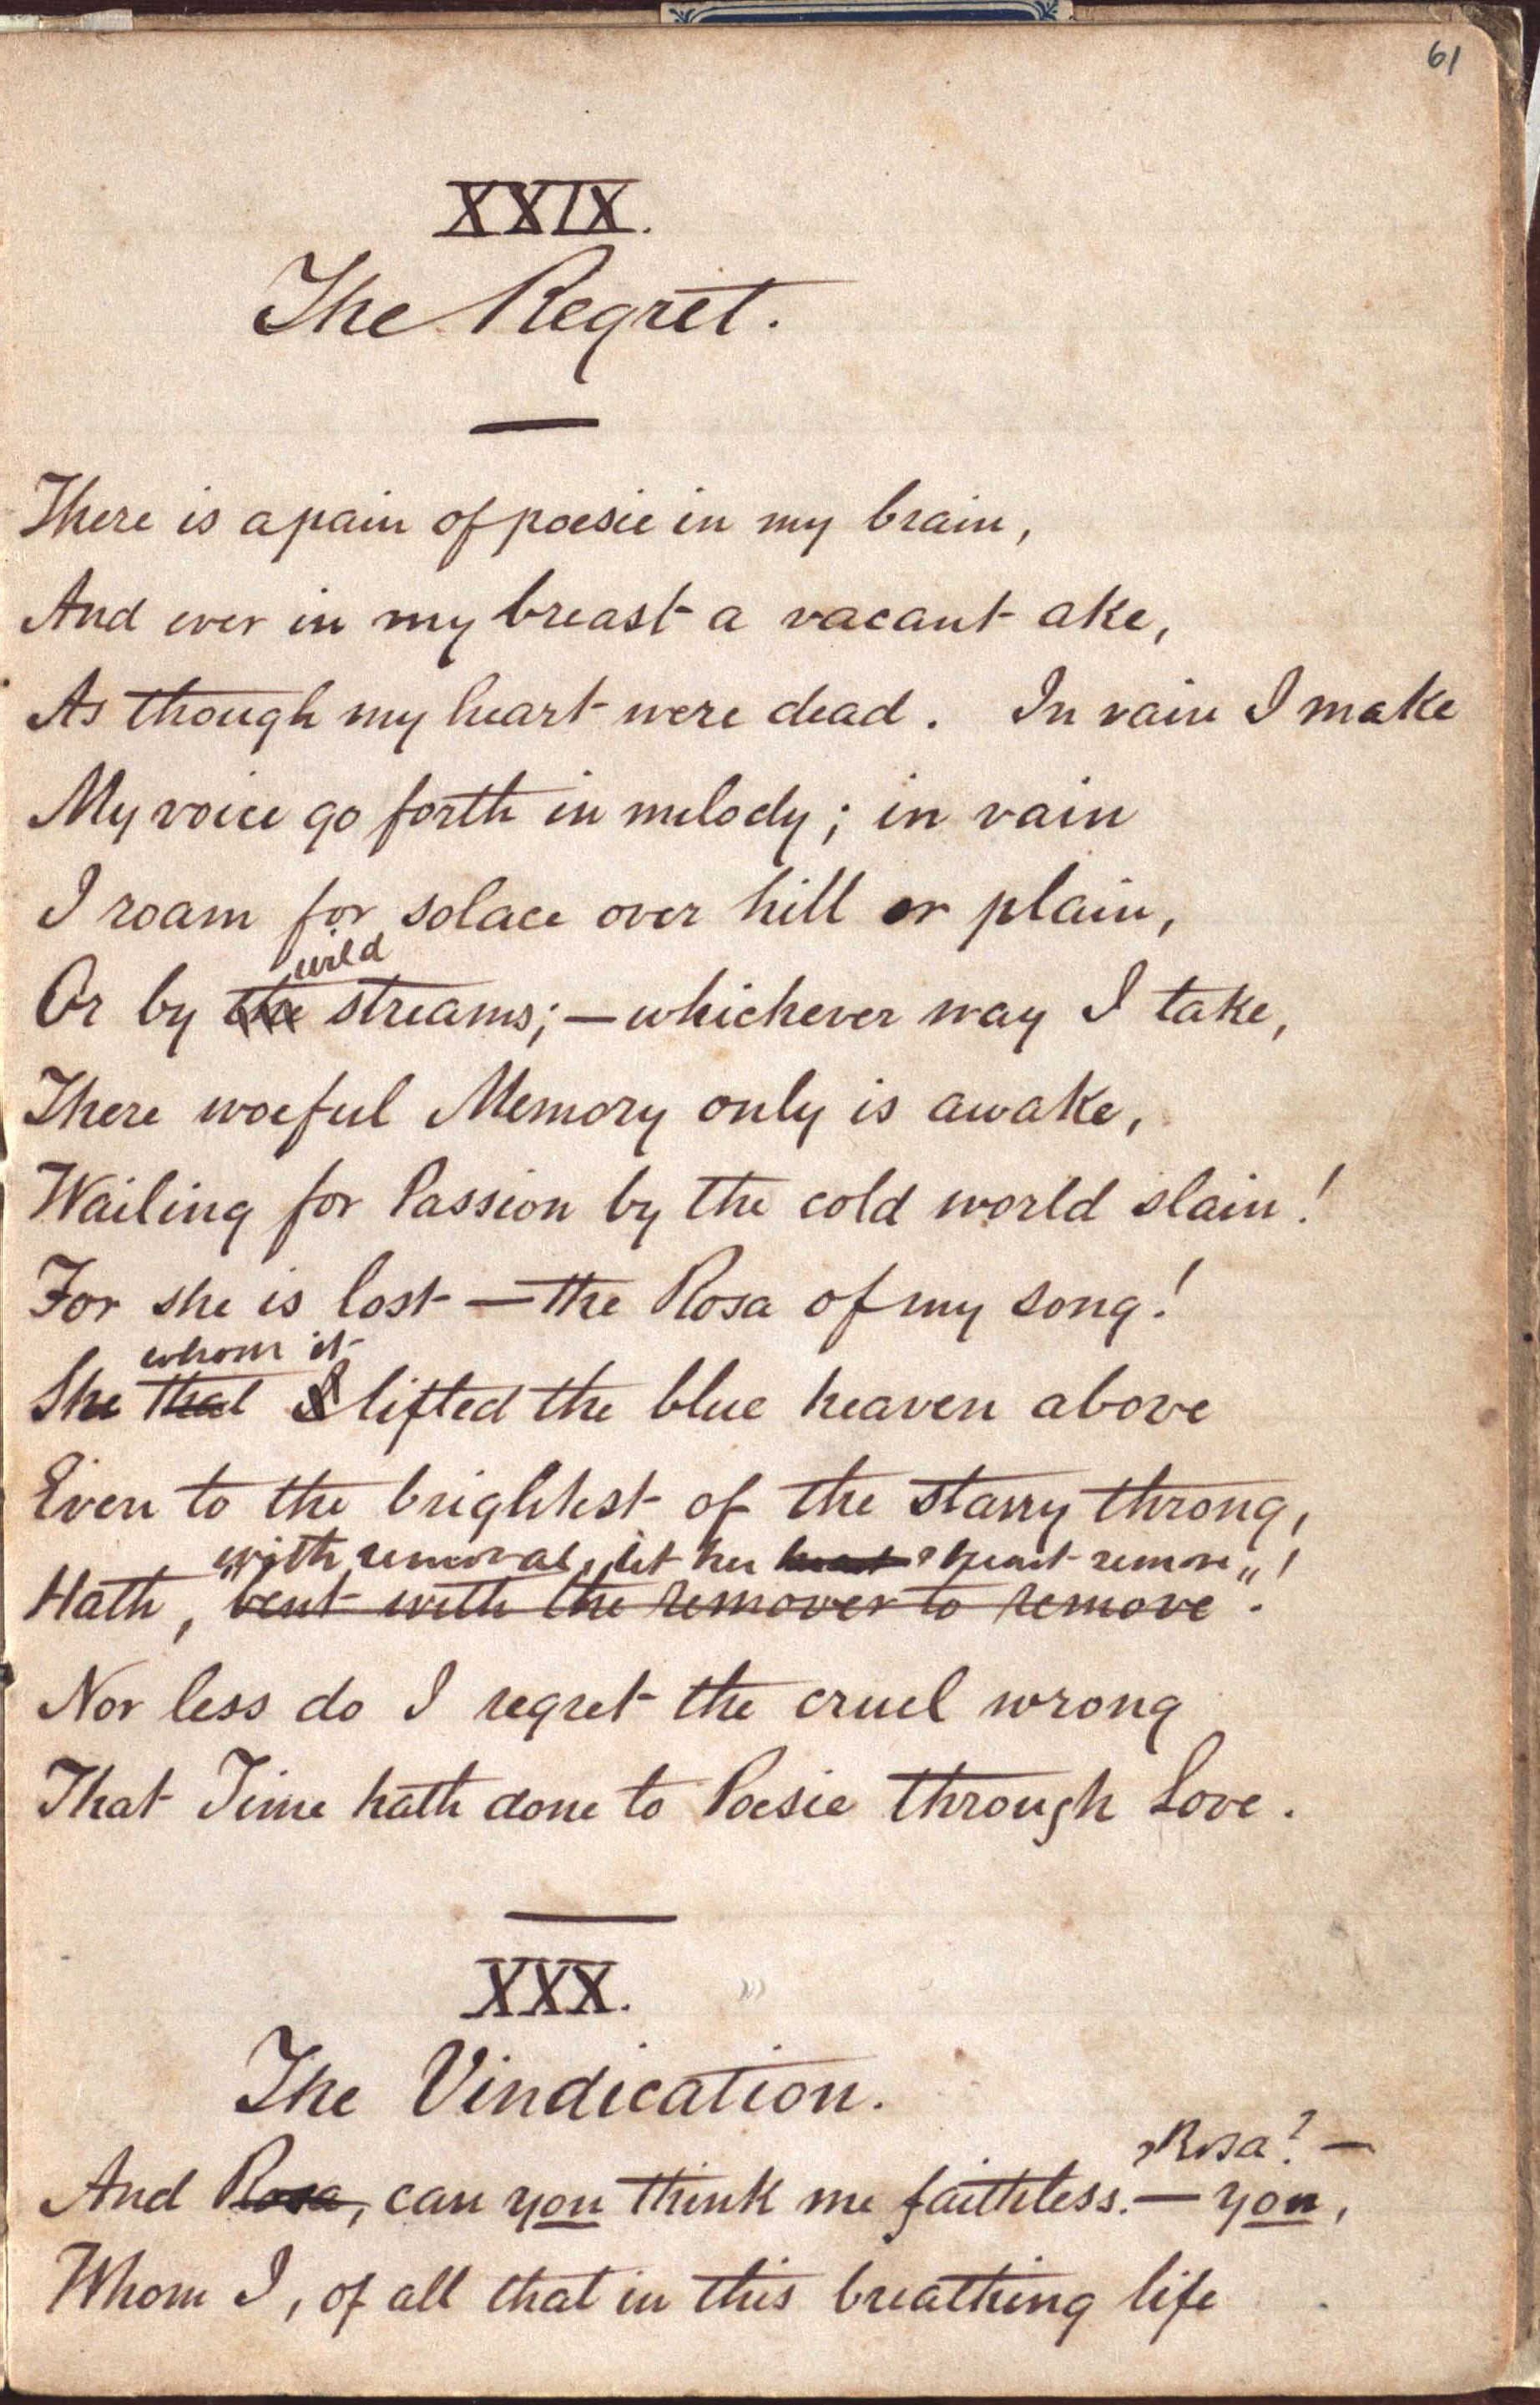 61
XXIX.
The Regret.
There is a pain of poesie in my brain,
And ever in my breast a vacant ake,
As though my heart were dead. In vain I make
My voice go forth in melody; in vain
I roam for solace over hill or plain,
wild
Or by the streams;—whichever way I take,
There woeful Memory only is awake,
Wailing for Passion by the cold world slain!
For she is lost—the Rosa of my song!
whom it
She that I lifted the blue heaven above
Even to the brightest of the starry throng,
"with removal, let her heart remove"!
Hath, bent with the remover to remove.
Nor less do I regret the cruel wrong
That Time hath done to Poesie through Love.
XXX.
The Vindication.
, Rosa? —
And Rosa, can you think me faithless.—you,
Whom I, of all that in this breathing life